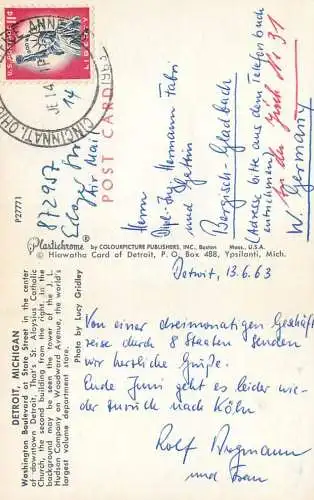 U.S. POSTAGE 11¢
LIBERTY
CINCINNATI, OHIO
JE 14
1963
14
872957
Air Mail
POST CARD
Herrn
Dipl.-Ing. Hermann Fabri
und Gattin
Bergisch-Gladbach
(Adresse bitte aus dem Telefonbuch
entnehmen)
W. Germany
P27771
Plastichrome ® by COLOURPICTURE PUBLISHERS, INC., Boston Mass., U.S.A.
© Hiawatha Card of Detroit, P. O. Box 488, Ypsilanti, Mich.
DETROIT, MICHIGAN
Washington Boulevard at State Street in the center
of downtown Detroit. That's St. Aloysius Catholic
Church, the second building from the right. In the
background may be seen the tower of the J. L.
Hudson Company on Woodward Avenue, the world's
largest volume department store.
Photo by Lucy Gridley
Detroit, 13.6.63
Von einer dreimonatigen Geschäfts
reise durch 8 Staaten senden
wir herzliche Grüße.
Ende Juni geht es leider wie-
der zurück nach Köln
Rolf
und Frau